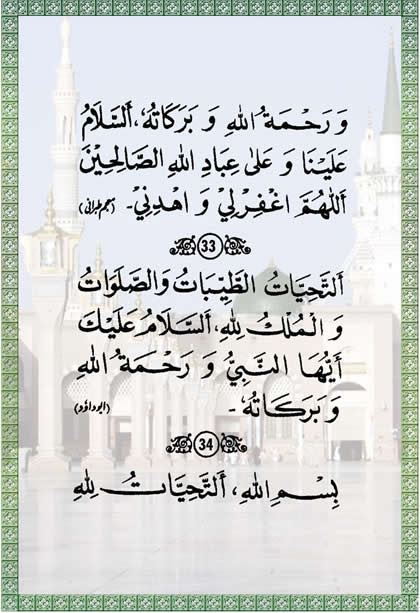 وَ رَحْمَةُ اللهِ وَ بَرَكَاتُهُ، اَلسَّلَامُ
عَلَيْنَا وَ عَلىٰ عِبَادِ اللهِ الصَّالِحِيْنَ
اَللّٰهُمَّ اغْفِرْلِيْ وَ اهْدِنِيْ۔ (معجم طبرانی)
33
اَلتَّحِيَّاتُ الطَّيِّبَاتُ وَالصَّلَوَاتُ
وَ الْمُلْكُ لِلّٰهِ، اَلسَّلَامُ عَلَيْكَ
اَيُّهَا النَّبِيُّ وَ رَحْمَةُ اللهِ
وَ بَرَكَاتُهُ۔ (ابوداؤد)
34
بِسْمِ اللهِ، اَلتَّحِيَّاتُ لِلّٰهِ